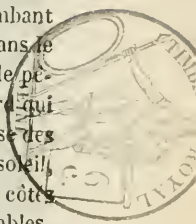 mbant
ans le
le pe-
re qui
se des
soleil,
côtés
ables
TIMBRE ROYAL